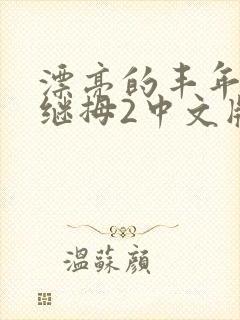 漂亮的丰年
继拇2中文版
温蘇顔